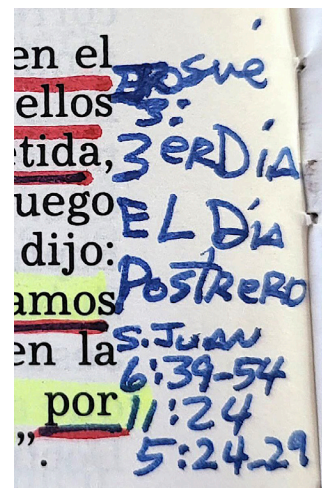 en el
ellos
tida,
uego
dijo:
amos
en la
por
”.
Josué
3:
3 erDía
EL Día
PostReRo
S. JUAN
6:39-54
11:24
5:24-29